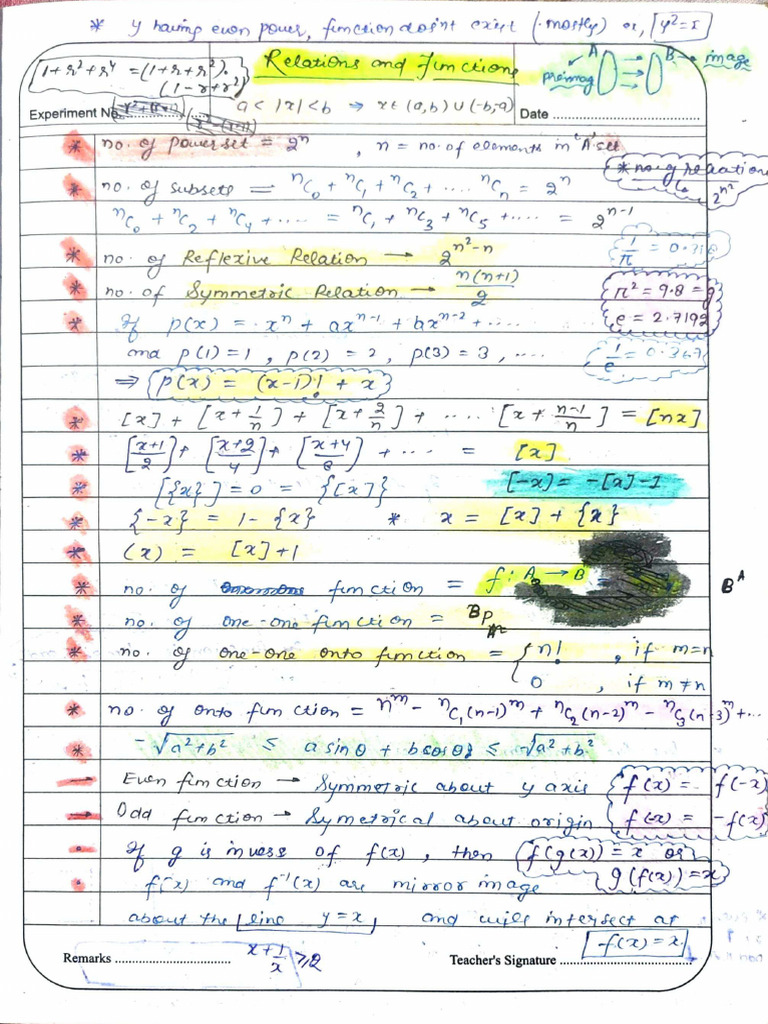 * y having even power, function doesn't exist (mostly) or, y² = x
1+r²+r⁴ = (1+r+r²).
(1-r+r²)
Relations and Functions
A B → image
preimag
Experiment No. a < |x| < b ⇒ x ∈ (a,b) ∪ (-b,-a) Date
* no. of power set = 2ⁿ , n = no. of elements in 'A' set
* no. of relation
↳ 2^(n²)
* no. of subsets = ⁿC₀ + ⁿC₁ + ⁿC₂ + .... ⁿCₙ = 2ⁿ
ⁿC₀ + ⁿC₂ + ⁿC₄ + .... = ⁿC₁ + ⁿC₃ + ⁿC₅ + .... = 2ⁿ⁻¹
* no. of Reflexive Relation → 2^(n²-n)
1/π = 0.318
* no. of Symmetric Relation → n(n+1)/2
π² = 9.8 = g
e = 2.7192
* If p(x) = xⁿ + axⁿ⁻¹ + bxⁿ⁻² + ....
and p(1) = 1 , p(2) = 2 , p(3) = 3 , ....
1/e = 0.367
⇒ p(x) = (x-1)! + x
* [x] + [x + 1/n] + [x + 2/n] + .... [x + (n-1)/n] = [nx]
* [(x+1)/2] + [(x+2)/4] + [(x+4)/8] + .... = [x]
* [{x}] = 0 = {[x]} [-x) = -[x] - 1
* {-x} = 1 - {x} * x = [x] + {x}
* (x) = [x] + 1
* no. of function = f : A → B = Bᴬ
* no. of one-one function = ᴮPᴀ
* no. of one-one onto function = { n! , if m = n
0 , if m ≠ n
* no. of onto function = nᵐ - ⁿC₁(n-1)ᵐ + ⁿC₂(n-2)ᵐ - ⁿC₃(n-3)ᵐ + ...
* -√(a²+b²) ≤ a sinθ + b cosθ ≤ √(a²+b²)
→ Even function → Symmetric about y axis f(x) = f(-x)
→ Odd function → Symetrical about origin f(-x) = -f(x)
• If g is inverse of f(x), then f(g(x)) = x or
g(f(x)) = x
• f(x) and f⁻¹(x) are mirror image
about the line y = x, and will intersect at
f(x) = x.
Remarks x + 1/x ≥ 2 Teacher's Signature